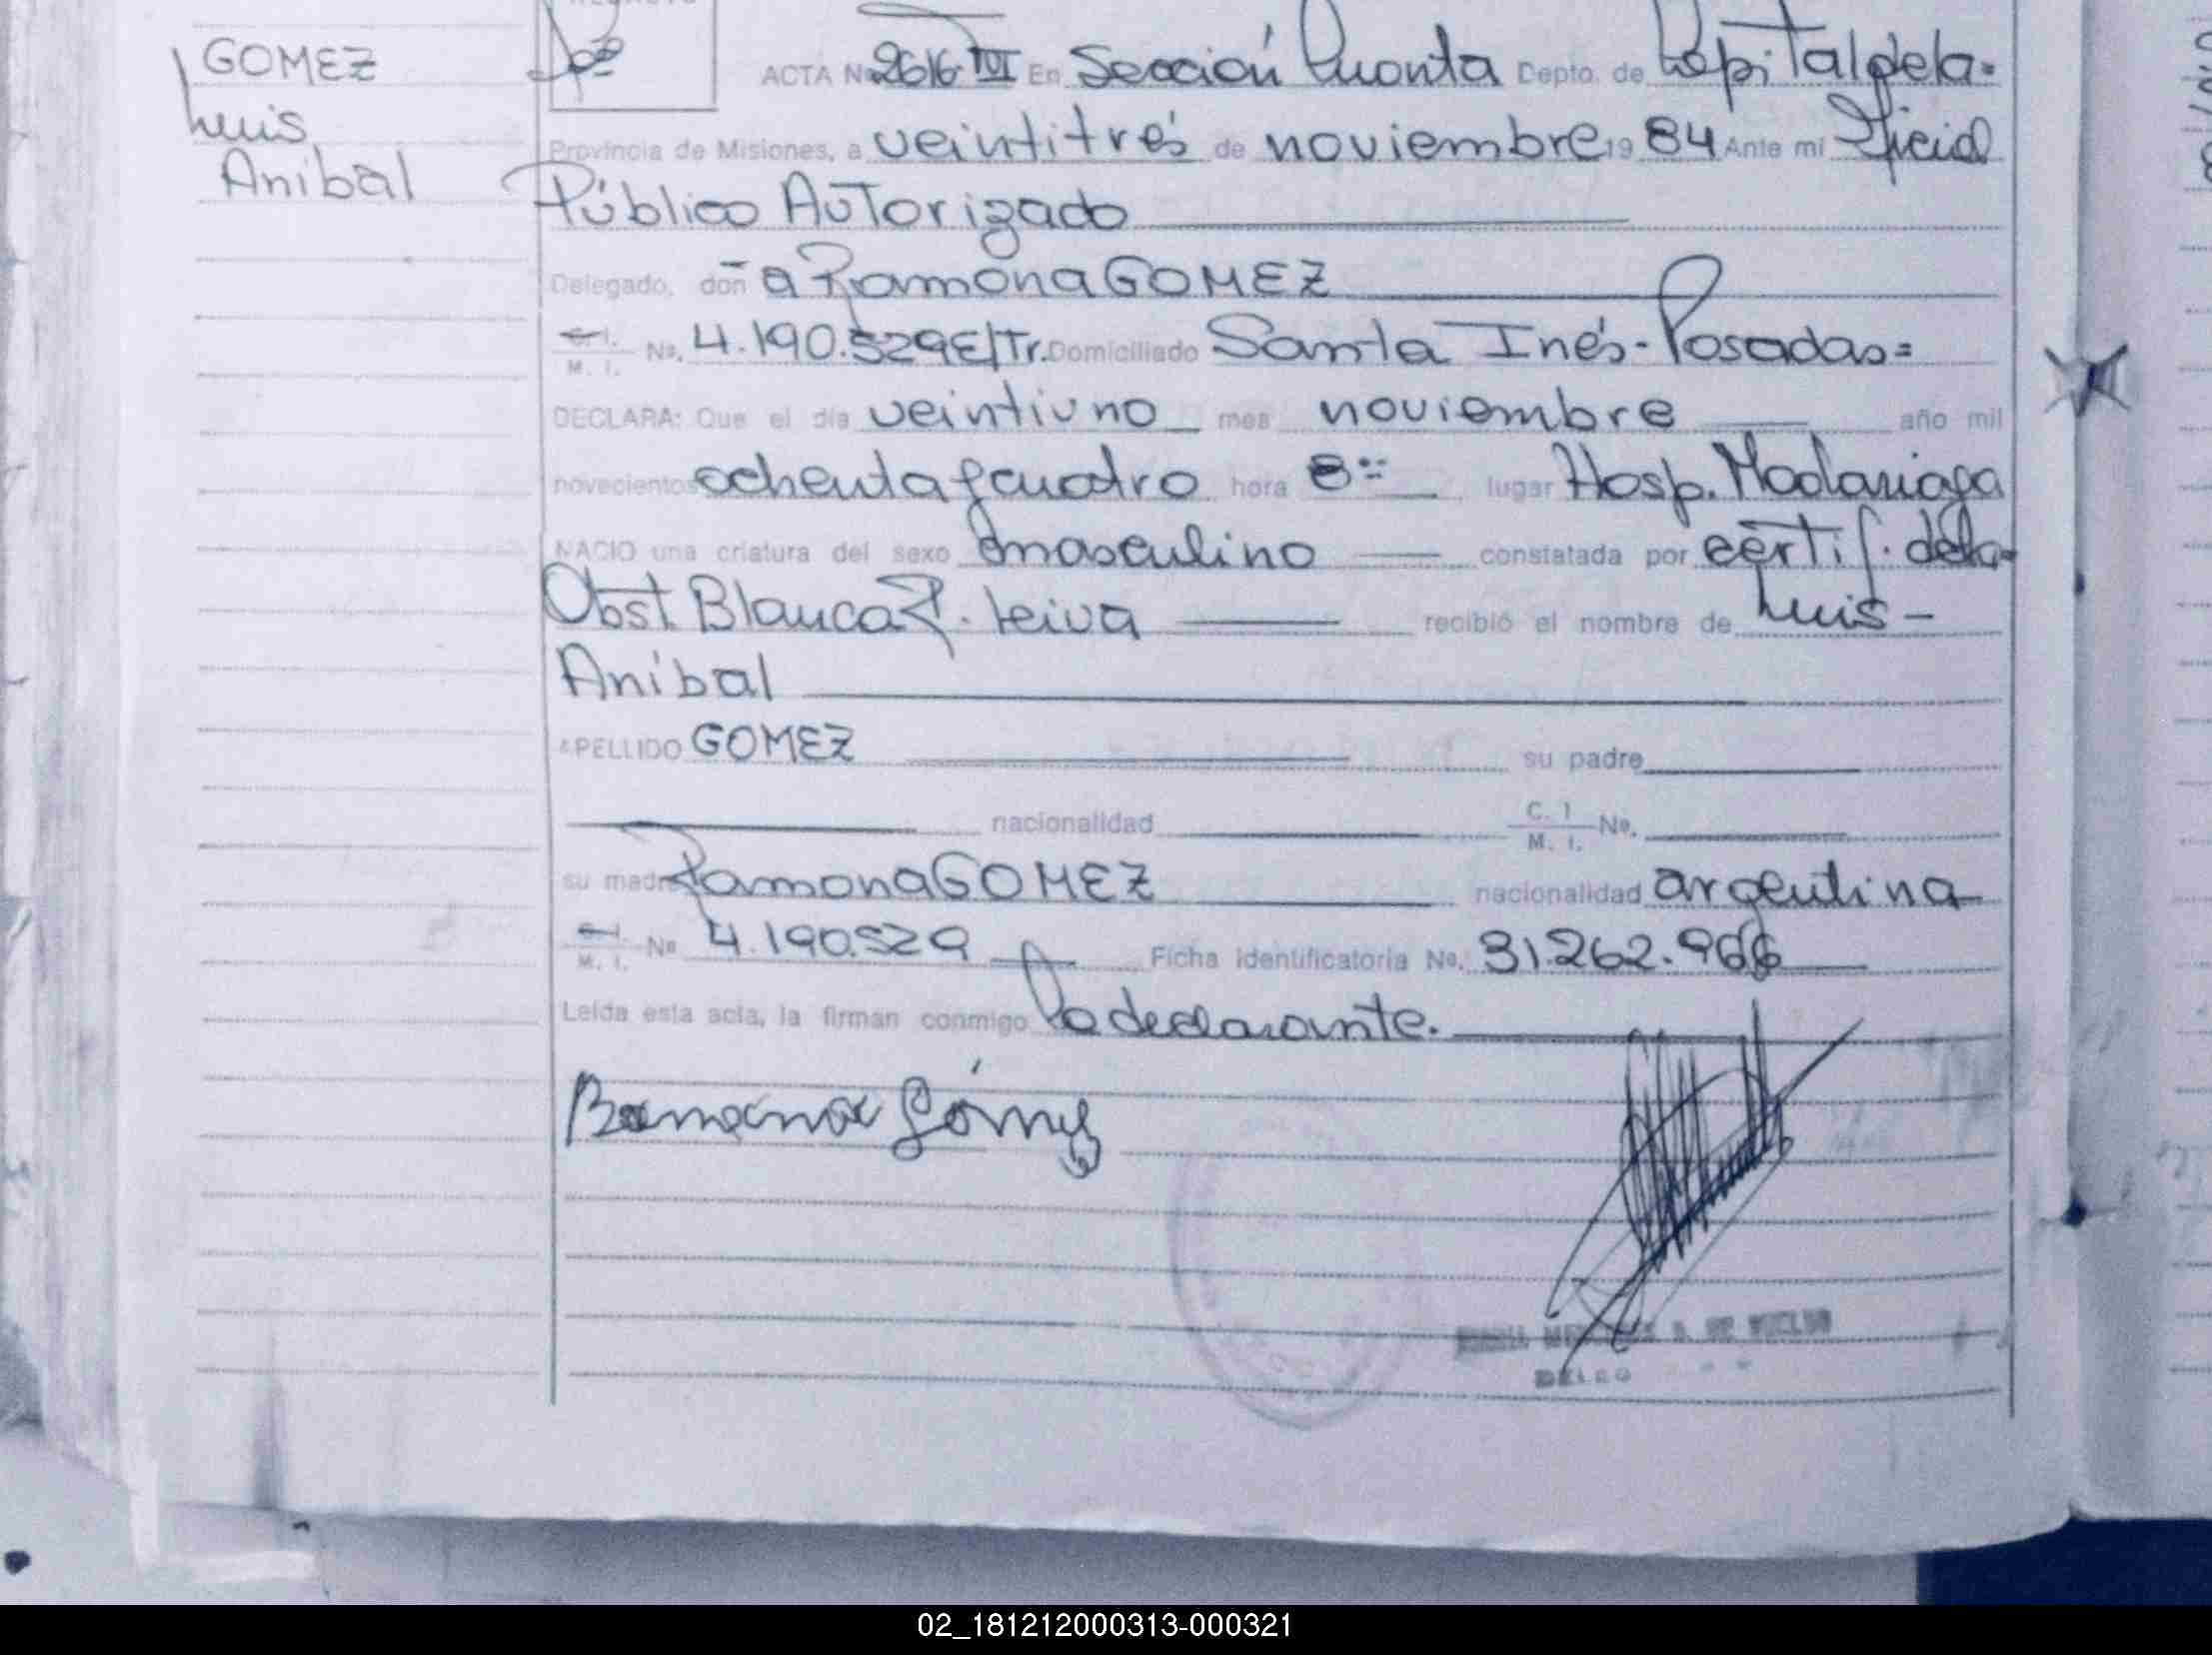 GOMEZ
Luis
Anibal
ACTA Nº 2616 TVI En Sección Cuarta Depto. de Capital de la-
Provincia de Misiones, a veintitrés de noviembre 19 84 Ante mi Oficial
Público Autorizado
Delegado, doña Ramona GOMEZ
C. I. M. I. Nº. 4.190.529 E/Tr. Domiciliado Santa Inés-Posadas=
DECLARA: Que el día veintiuno mes noviembre año mil
novecientos ochenta y cuatro hora 8 lugar Hosp. Madariaga
NACIO una criatura del sexo masculino constatada por certif. de la-
Obst. Blanca R. Leiva recibió el nombre de Luis-
Anibal
APELLIDO GOMEZ su padre
nacionalidad C. I M. I. Nº.
su madre Ramona GOMEZ nacionalidad argentina
C. I. M. I. Nº 4.190.529 Ficha identificatoria Nº. 31.262.966
Leída esta acta, la firman conmigo la declarante.
Ramona Gómez
02_181212000313-000321